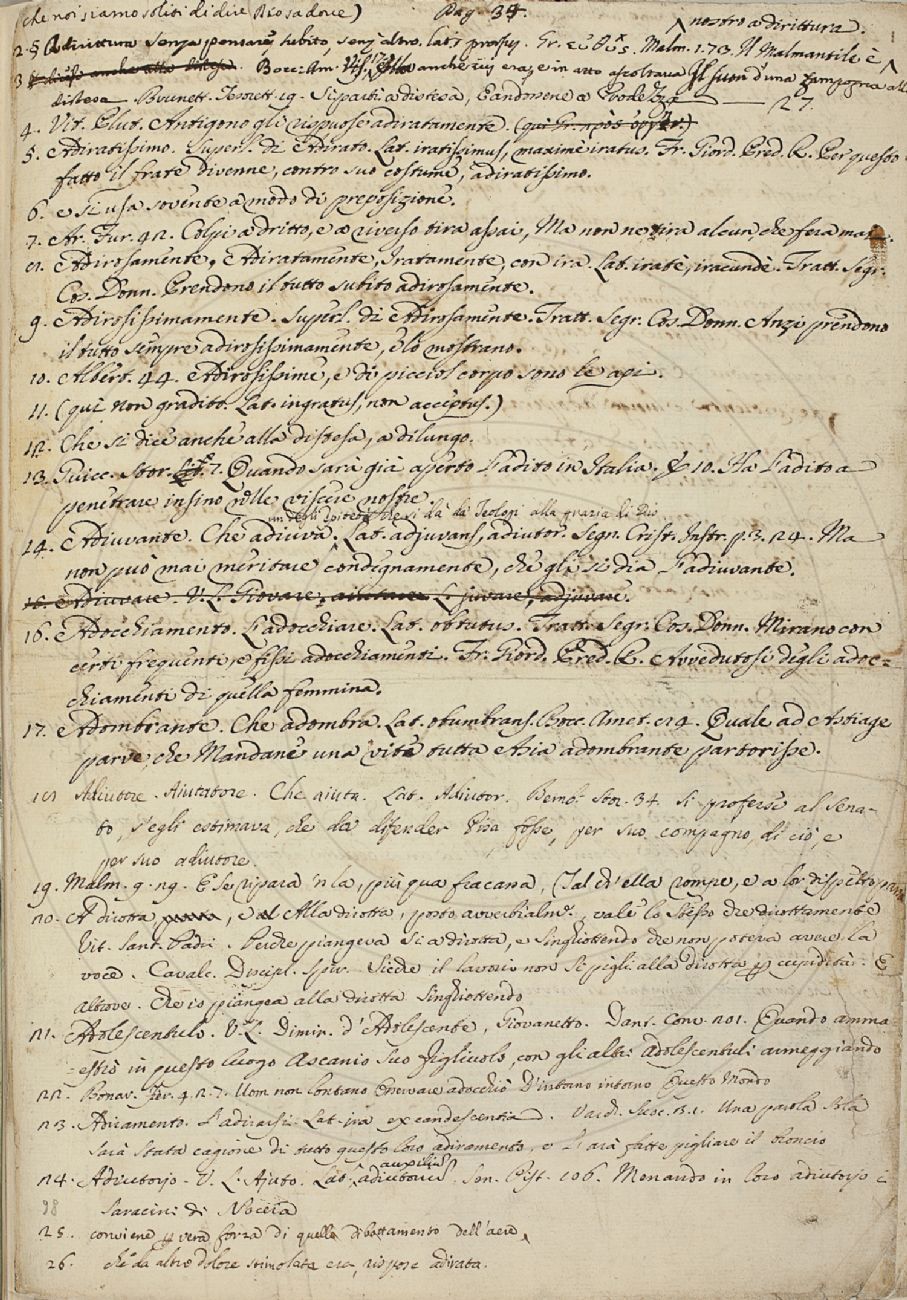 (che noi siamo soliti di dire Riosadore) Pag. 34.
nostro a dirittura.
2. § Adirittura senza pensarvi, subito, senz' altro. lat. Gr. εὐθύς. Malm. 1.73. Il Malmantile è
3 anche in atto ascoltava Il suon d'una zampogna alla
distesa Brunett. Tesorett. 19. Si partì a distesa, E andonne a 27.
4. Vit. Plut. Antigono gli rispuose adiratamente. (qui Gr. πρὸς ὀργήν.)
5. Adiratissimo. Superl. di Adirato. Lat. iratissimus, maxime iratus. Fr. Giord. Pred. R. Per questo
fatto il frate divenne, contro suo costume, adiratissimo.
6. e si usa sovente a modo di preposizione.
7. Ar. Fur. 42. Colpi a dritto, e a riverso tira assai, Ma non ne tira alcun, che fera mai.
8. Adirosamente. Adiratamente, Iratamente, con ira. Lat. iratè, iracundè. Tratt. Segr.
Cos. Donn. Prendono il tutto subito adirosamente.
9. Adirosissimamente. Superl. di Adirosamente. Tratt. Segr. Cos. Donn. Anzi prendono
il tutto sempre adirosissimamente, e lo mostrano.
10. Albert. 44. Adirosissime, e di picciol corpo sono le api.
11. (qui non gradito. Lat. ingratus, non acceptus.)
12. Che si dice anche alla distesa, a dilungo.
13. Guicc. Stor. 7. Quando sarà già aperto l'adito in Italia. E 10. Ha l'adito a
penetrare insino nelle viscere nostre.
un degli epiteti che si dà da' Teologi alla grazia di Dio
14. Adiuvante. Che adiuva. Lat. adjuvans, adiutor. Segn. Crist. Instr. p. 3. 24. Ma
non può mai meritare condegnamente, che gli si dia l'adiuvante.
15. Adiuvare. V. L. Giovare, aiutare. L. juvare, adjuvare.
16. Adocchiamento. L'adocchiare. Lat. obtutus. Tratt. Segr. Cos. Donn. Mirano con
certi frequenti, e fissi adocchiamenti. Fr. Giord. Pred. R. Avvedutosi degli adoc-
chiamenti di quella femmina.
17. Adombrante. Che adombra. Lat. obumbrans. Bocc. Amet. 84. Quale ad Astiage
parve, che Mandane una vite tutta Asia adombrante partorisse.
18 Adiutore. Aiutatore. Che aiuta. Lat. Adiutor. Bemb. Stor. 34 si proferse al Sena-
to, s'egli estimava, che da difender Pisa fosse, per suo compagno di ciò, e
per suo adiutore.
19. Malm. 9. 29. E se ripara 'n là, più qua fracassa, (Tal ch'ella rompe, e a lor dispetto
20. A dirotta, e Alla dirotta, posto avverbialm.e, vale lo stesso che dirottamente
Vit. Sant. Padr. Perche piangeva sì a dirotta, e singhiottendo che non poteva avere la
voce. Cavalc. Discipl. spir. Siche il lavorio non si pigli alla dirotta p cupidità. E
altrove. Che io piangea alla dirotta singhiottendo
21. Adolescentulo. V. L. Dimin. d'Adolescente, Giovanetto. Dant. Conv. 201. Quando amma
-estrò in questo luogo Ascanio suo figliuolo, con gli altri Adolescentuli armeggiando
22. Bonar. Fier. 4. 2. 7. Uom non lontano Ch'errare adocchiò D'intorno intorno Questo Mondo
23. Adiramento. L'adirarsi. Lat. ira excandescentia. Vard. Suoc. 3. 1. Una parola sola
sarà stata cagione di tutto questo loro adiramento, e l'arà fatte pigliare il broncio
24. Adiutorio. V. L. Ajuto. Lat. adiutorium auxilium. Sen. Pist. 106. Menando in loro adiutorio i
98 Saracini di Nocera
25. conviene p vera forza di quello dibattamento dell'aere,
26. che da altro dolore stimolata era, rispose adirata.